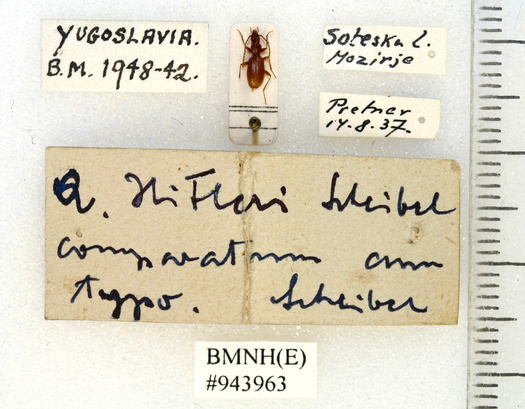 YUGOSLAVIA.
B.M. 1948-42.
Soteska l.
Mozirje
Pretner
14.8.37.
a. Hitleri Scheibel
comparatum cum
typo. Scheibel
BMNH(E)
#943963